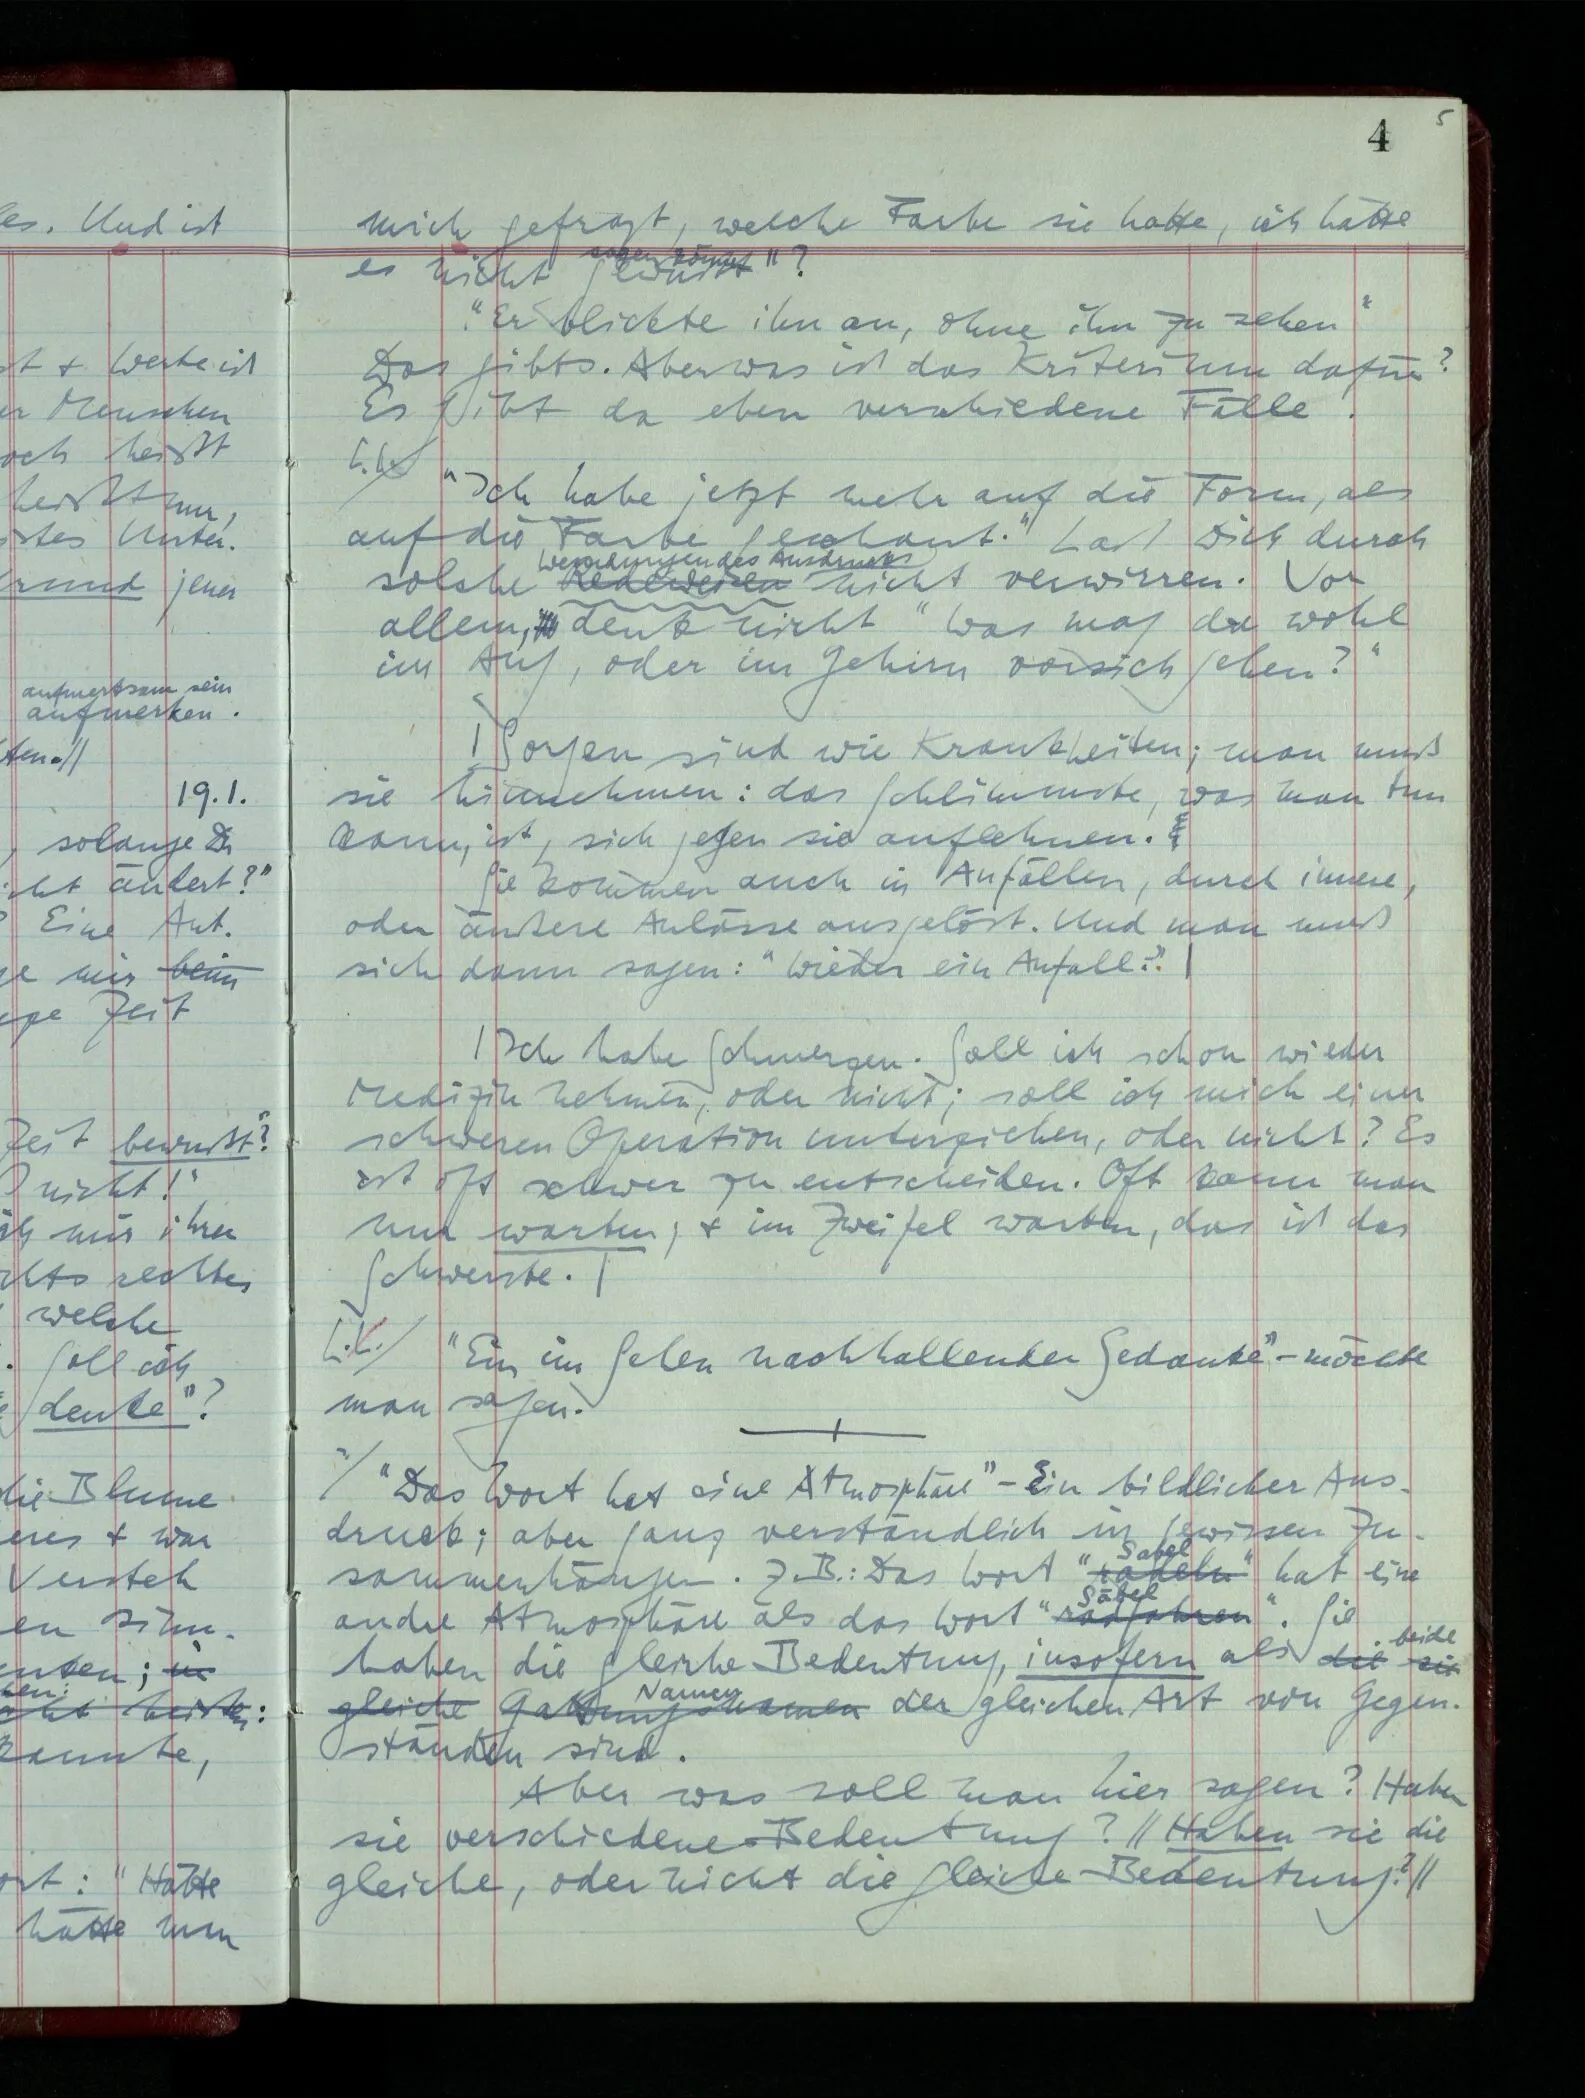 4
5
mich gefragt, welche Farbe sie hatte, ich hätte
sagen könnt
es nicht gewußt"?
"Er blickte ihn an, ohne ihn zu sehen"
Das gibts. Aber was ist das Kriterium dafür?
Es gibt da eben verschiedene Fälle.
"Ich habe jetzt mehr auf die Form, als
auf die Farbe geschaut." Laß Dich durch
Wendungen des Ausdrucks
solche Redeweisen nicht verwirren. Vor
allem, denk nicht "Was mag da wohl
im Aug, oder im Gehirn vorsich gehen?"
| Sorgen sind wie Krankheiten; man muß
sie hinnehmen: das Schlimmste, was man tun
kann, ist, sich gegen sie auflehnen.
Sie kommen auch in Anfällen, durch innere,
oder äußere Anlässe ausgelöst. Und man muß
sich dann sagen: "Wieder ein Anfall." |
| Ich habe Schmerzen. Soll ich schon wieder
Medizin nehmen, oder nicht; soll ich mich einer
schweren Operation unterziehen, oder nicht? Es
ist oft schwer zu entscheiden. Oft kann man
nur warten; & im Zweifel warten, das ist das
Schwerste. |
"Ein im Sehen nachhallender Gedanke" – möchte
man sagen.
"Das Wort hat eine Atmosphäre" – Ein bildlicher Aus-
druck; aber ganz verständlich in gewissen Zu-
Sabel
sammenhängen. Z.B.: Das Wort "radeln" hat eine
Säbel
andre Atmosphäre als das Wort "radfahren". Sie
beide
haben die gleiche Bedeutung, insofern als die sie
Namen
gleiche Gattungsnamen der gleichen Art von Gegen-
ständen sind.
Aber was soll man hier sagen? Haben
sie verschiedene Bedeutung? // Haben sie die
gleiche, oder nicht die gleiche Bedeutung? //
es. Und ist
& Werke ist
Menschen
heißt
heißt nur,
Unter.
jener
aufmerksam sein
aufmerken.
19.1.
, solange Du
ändert?"
Eine Ant.
mir beim
Zeit
Zeit bewußt"?
nicht!"
mir ihrer
rechtes
welche
Soll ich
denke"?
die Blume
& war
Versteh
Sinn.
; in
heißen:
konnte,
: "Hätte
hätte man